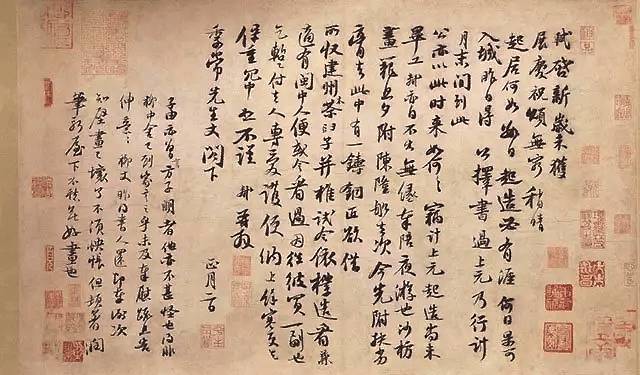 軾啓新歲未獲
展慶祝頌無窮稍晴
起居何如數日起造必有涯何日果可
入城昨日得公擇書過上元乃行計
月末間到此
公亦以此時來如何〻竊計上元起造尚未
畢工軾亦自不出無緣奉陪夜遊也沙枋
畫籠旦夕附陳隆舡去次今先附扶劣
膏去此中有一鑄銅匠欲借
所收建州木茶臼子并椎試令依樣造看兼
適有閩中人便或令看過因往彼買一副也
乞暫付去人專愛護便納上餘寒更乞
保重冗中恕不謹軾再拜
季常先生丈閣下
正月二日
子由亦曾言方子明者他亦不甚怪也得非
柳中舍已到家言之乎未及奉慰疏且告
伸意〻柳丈昨得書人還即奉謝次
知壁畫已壞了不須怏悵但頓著潤
筆新屋下不愁無好畫也